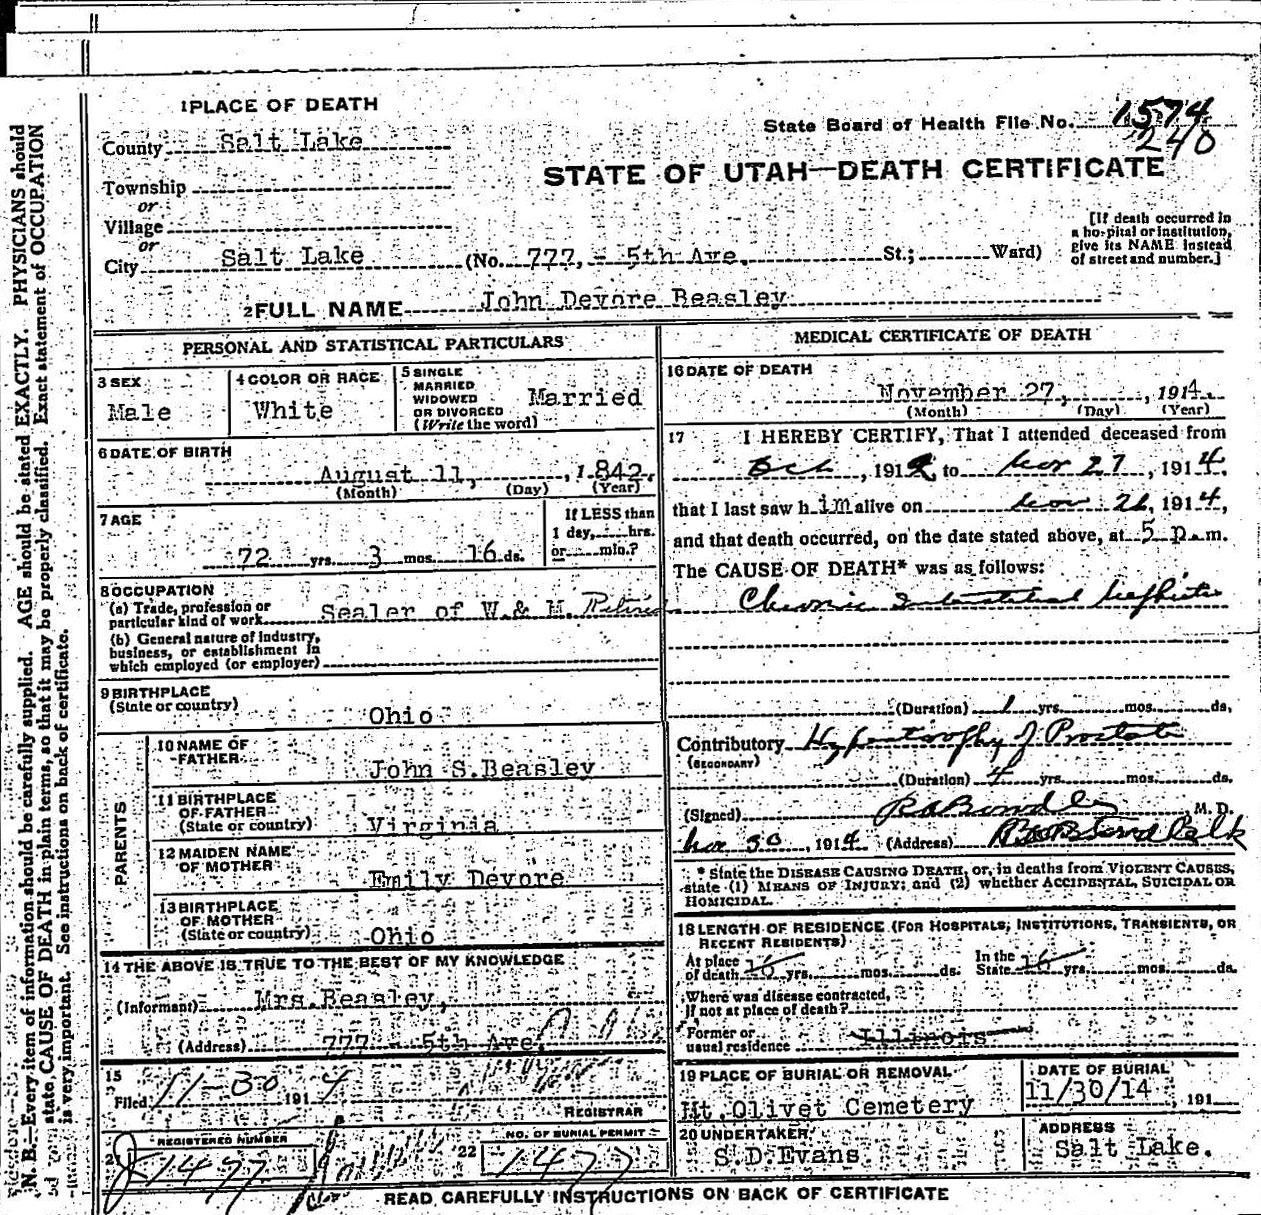 1 PLACE OF DEATH
County Salt Lake
Township
or
Village
or
City Salt Lake (No. 777, - 5th Ave. St.; Ward)
State Board of Health File No. 1574
240
STATE OF UTAH—DEATH CERTIFICATE
[If death occurred in
a hospital or institution,
give its NAME instead
of street and number.]
2 FULL NAME John Devore Beasley
PERSONAL AND STATISTICAL PARTICULARS
3 SEX
Male
4 COLOR OR RACE
White
5 SINGLE
MARRIED
WIDOWED
OR DIVORCED
(Write the word)
Married
6 DATE OF BIRTH
August 11, 1842.
(Month) (Day) (Year)
7 AGE
72 yrs. 3 mos. 16 ds.
If LESS than
1 day, hrs.
or min.?
8 OCCUPATION
(a) Trade, profession or
particular kind of work Sealer of W. & M. Retired
(b) General nature of industry,
business, or establishment in
which employed (or employer)
9 BIRTHPLACE
(State or country)
Ohio
PARENTS
10 NAME OF
FATHER
John S. Beasley
11 BIRTHPLACE
OF FATHER
(State or country) Virginia
12 MAIDEN NAME
OF MOTHER
Emily Devore
13 BIRTHPLACE
OF MOTHER
(State or country) Ohio
14 THE ABOVE IS TRUE TO THE BEST OF MY KNOWLEDGE
(Informant) Mrs. Beasley,
(Address) 777 - 5th Ave.
15
Filed 11-30 1914
REGISTRAR
REGISTERED NUMBER
21 1477
22 NO. OF BURIAL PERMIT
1477
MEDICAL CERTIFICATE OF DEATH
16 DATE OF DEATH
November 27, , 1914.
(Month) (Day) (Year)
17 I HEREBY CERTIFY, That I attended deceased from
Oct , 191 to Nov 27 , 1914.
that I last saw him alive on Nov 26, 1914,
and that death occurred, on the date stated above, at 5 p.m.
The CAUSE OF DEATH* was as follows:
Chronic Interstitial Nephritis
(Duration) 1 yrs. mos. ds.
Contributory Hypertrophy of Prostate
(SECONDARY)
(Duration) 4 yrs. mos. ds.
(Signed) M. D.
Nov 30 , 1914 (Address)
* State the DISEASE CAUSING DEATH, or, in deaths from VIOLENT CAUSES,
state (1) MEANS OF INJURY; and (2) whether ACCIDENTAL, SUICIDAL OR
HOMICIDAL.
18 LENGTH OF RESIDENCE (FOR HOSPITALS, INSTITUTIONS, TRANSIENTS, OR
RECENT RESIDENTS)
At place
of death 16 yrs. mos. ds. In the
State 16 yrs. mos. ds.
Where was disease contracted,
If not at place of death?
Former or
usual residence Illinois
19 PLACE OF BURIAL OR REMOVAL
Mt. Olivet Cemetery
DATE OF BURIAL
11/30/14 , 191
20 UNDERTAKER
S.D. Evans.
ADDRESS
Salt Lake.
READ CAREFULLY INSTRUCTIONS ON BACK OF CERTIFICATE
N. B.—Every item of information should be carefully supplied. AGE should be stated EXACTLY. PHYSICIANS should
state CAUSE OF DEATH in plain terms, so that it may be properly classified. Exact statement of OCCUPATION
is very important. See instructions on back of certificate.